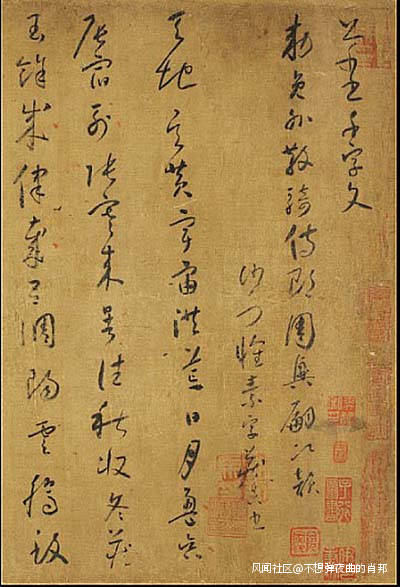 千字文
敕員外散騎侍郎周興嗣次韻
沙門懷素字藏真書
天地玄黃宇宙洪荒日月盈昃
辰宿列張寒來暑往秋收冬藏
閏餘成律歲呂調陽雲騰致
风闻社区@不想弹夜曲的肖邦